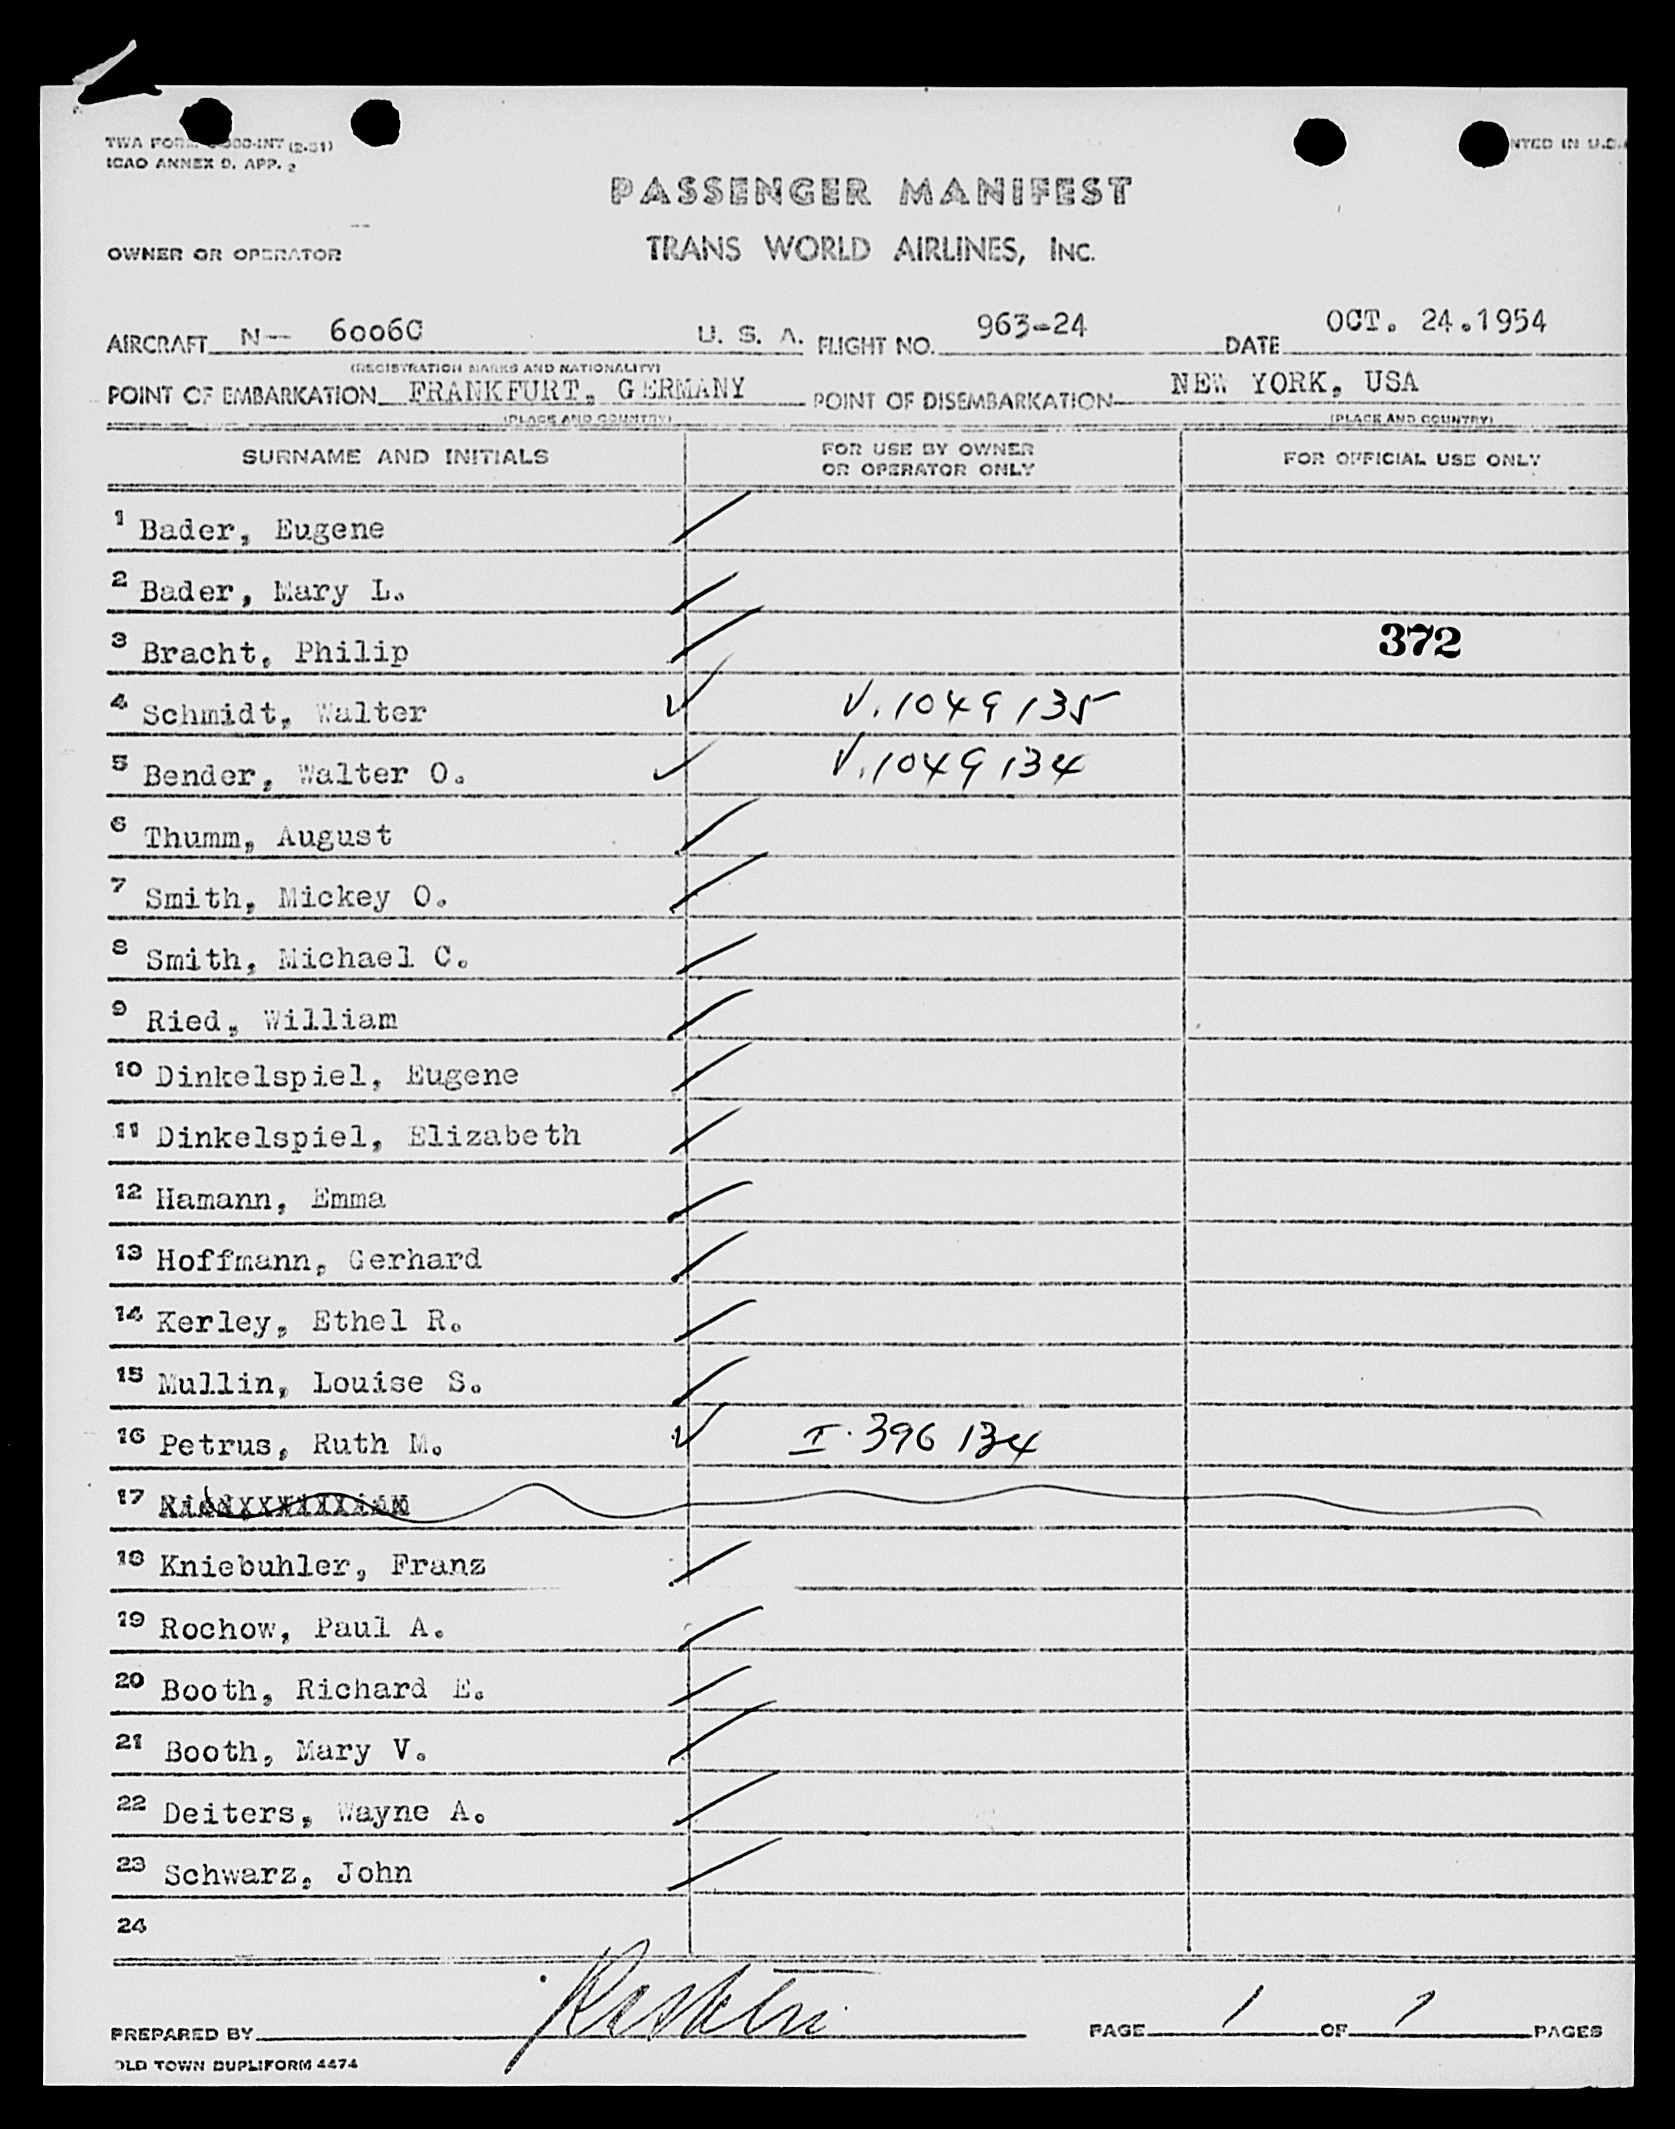 TWA FORM 000-INT (2-51)
ICAO ANNEX 9, APP. 2
NTED IN U.S.A
PASSENGER MANIFEST
OWNER OR OPERATOR
TRANS WORLD AIRLINES, INC.
AIRCRAFT N— 6006C U. S. A. FLIGHT NO. 963-24 DATE OCT. 24.1954
(REGISTRATION MARKS AND NATIONALITY)
POINT OF EMBARKATION FRANKFURT, GERMANY POINT OF DISEMBARKATION NEW YORK, USA
(PLACE AND COUNTRY) (PLACE AND COUNTRY)
SURNAME AND INITIALS FOR USE BY OWNER OR OPERATOR ONLY FOR OFFICIAL USE ONLY
1 Bader, Eugene
2 Bader, Mary L.
3 Bracht, Philip 372
4 Schmidt, Walter V. 1049135
5 Bender, Walter O. V. 1049134
6 Thumm, August
7 Smith, Mickey O.
8 Smith, Michael C.
9 Ried, William
10 Dinkelspiel, Eugene
11 Dinkelspiel, Elizabeth
12 Hamann, Emma
13 Hoffmann, Gerhard
14 Kerley, Ethel R.
15 Mullin, Louise S.
16 Petrus, Ruth M. I. 396134
17
18 Kniebuhler, Franz
19 Rochow, Paul A.
20 Booth, Richard E.
21 Booth, Mary V.
22 Deiters, Wayne A.
23 Schwarz, John
24
PREPARED BY PAGE 1 OF 1 PAGES
OLD TOWN DUPLIFORM 4474